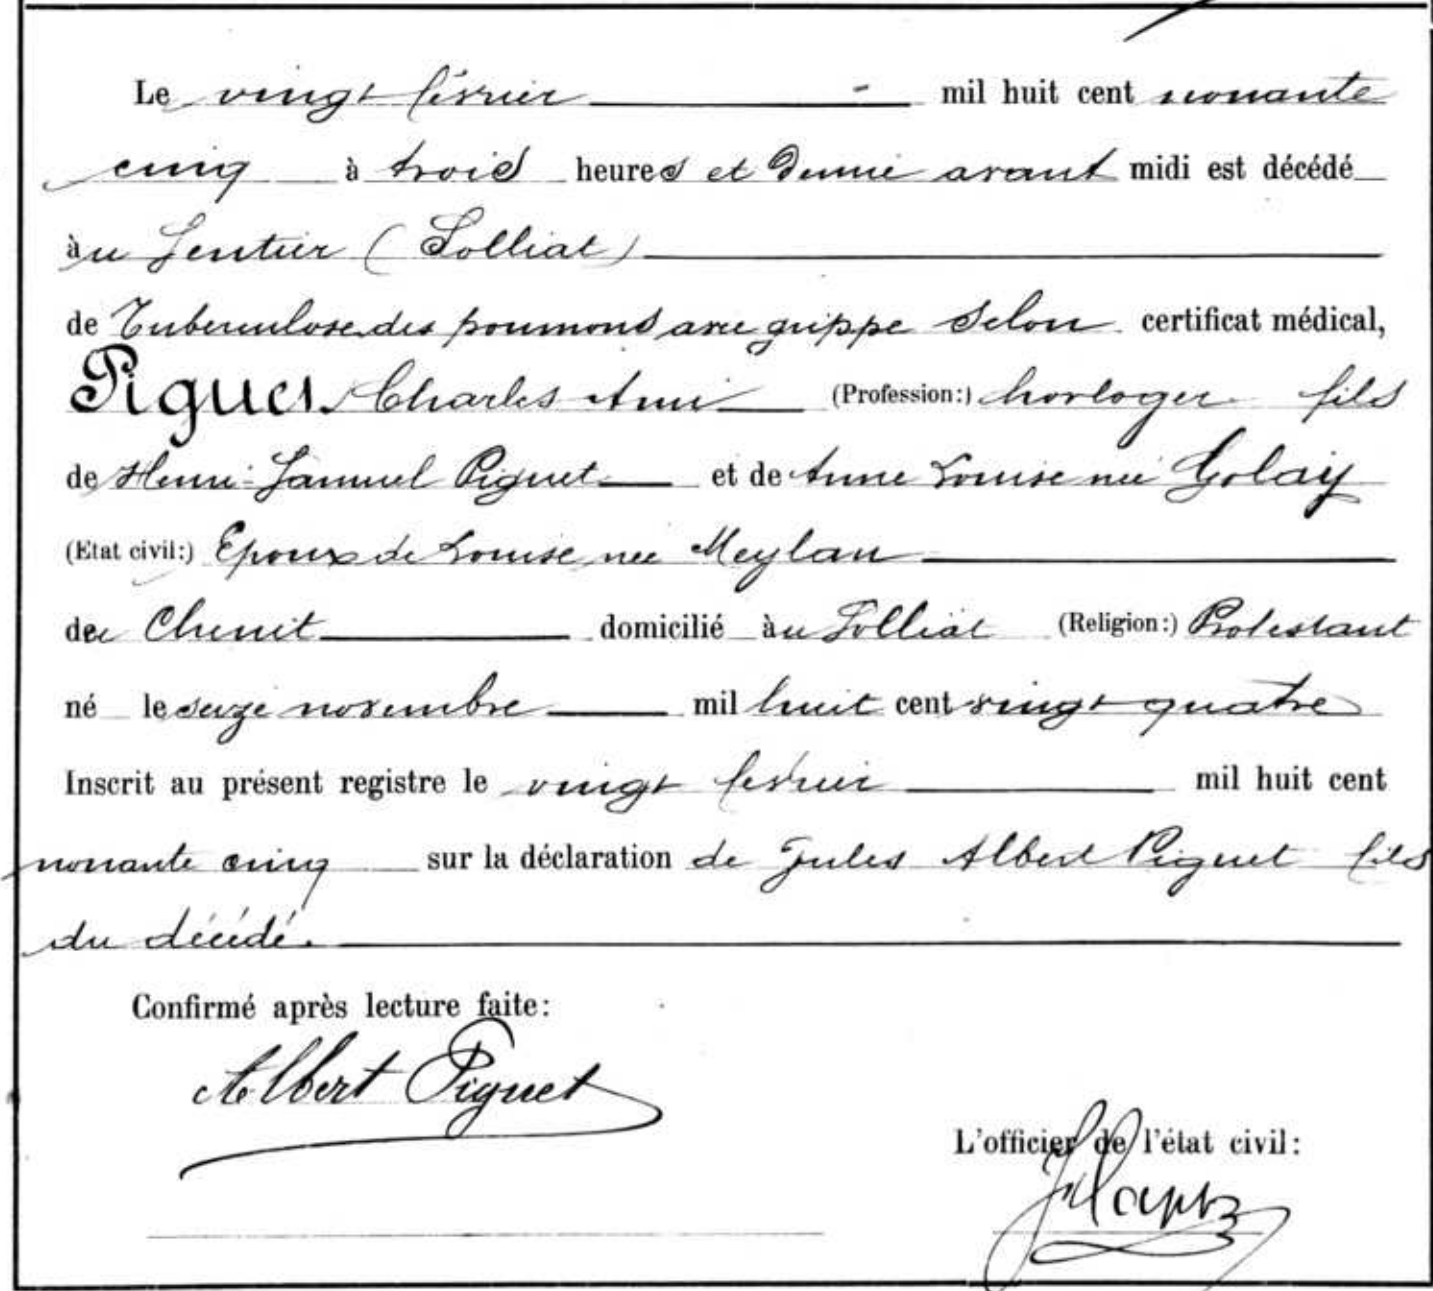 Le vingt février - mil huit cent nonante
cinq à trois heures et demie avant midi est décédé
au Sentier (Solliat)
de Tuberculose des poumons avec grippe selon certificat médical,
Piguet, Charles Ami (Profession:) horloger fils
de Henri-Samuel Piguet et de Anne Louise née Golay
(Etat civil:) Epoux de Louise née Meylan
du Chenit domicilié au Solliat (Religion:) Protestant
né le seize novembre mil huit cent vingt quatre
Inscrit au présent registre le vingt février mil huit cent
nonante cinq sur la déclaration de Jules Albert Piguet fils
du décédé.
Confirmé après lecture faite:
Albert Piguet
L'officier de l'état civil: